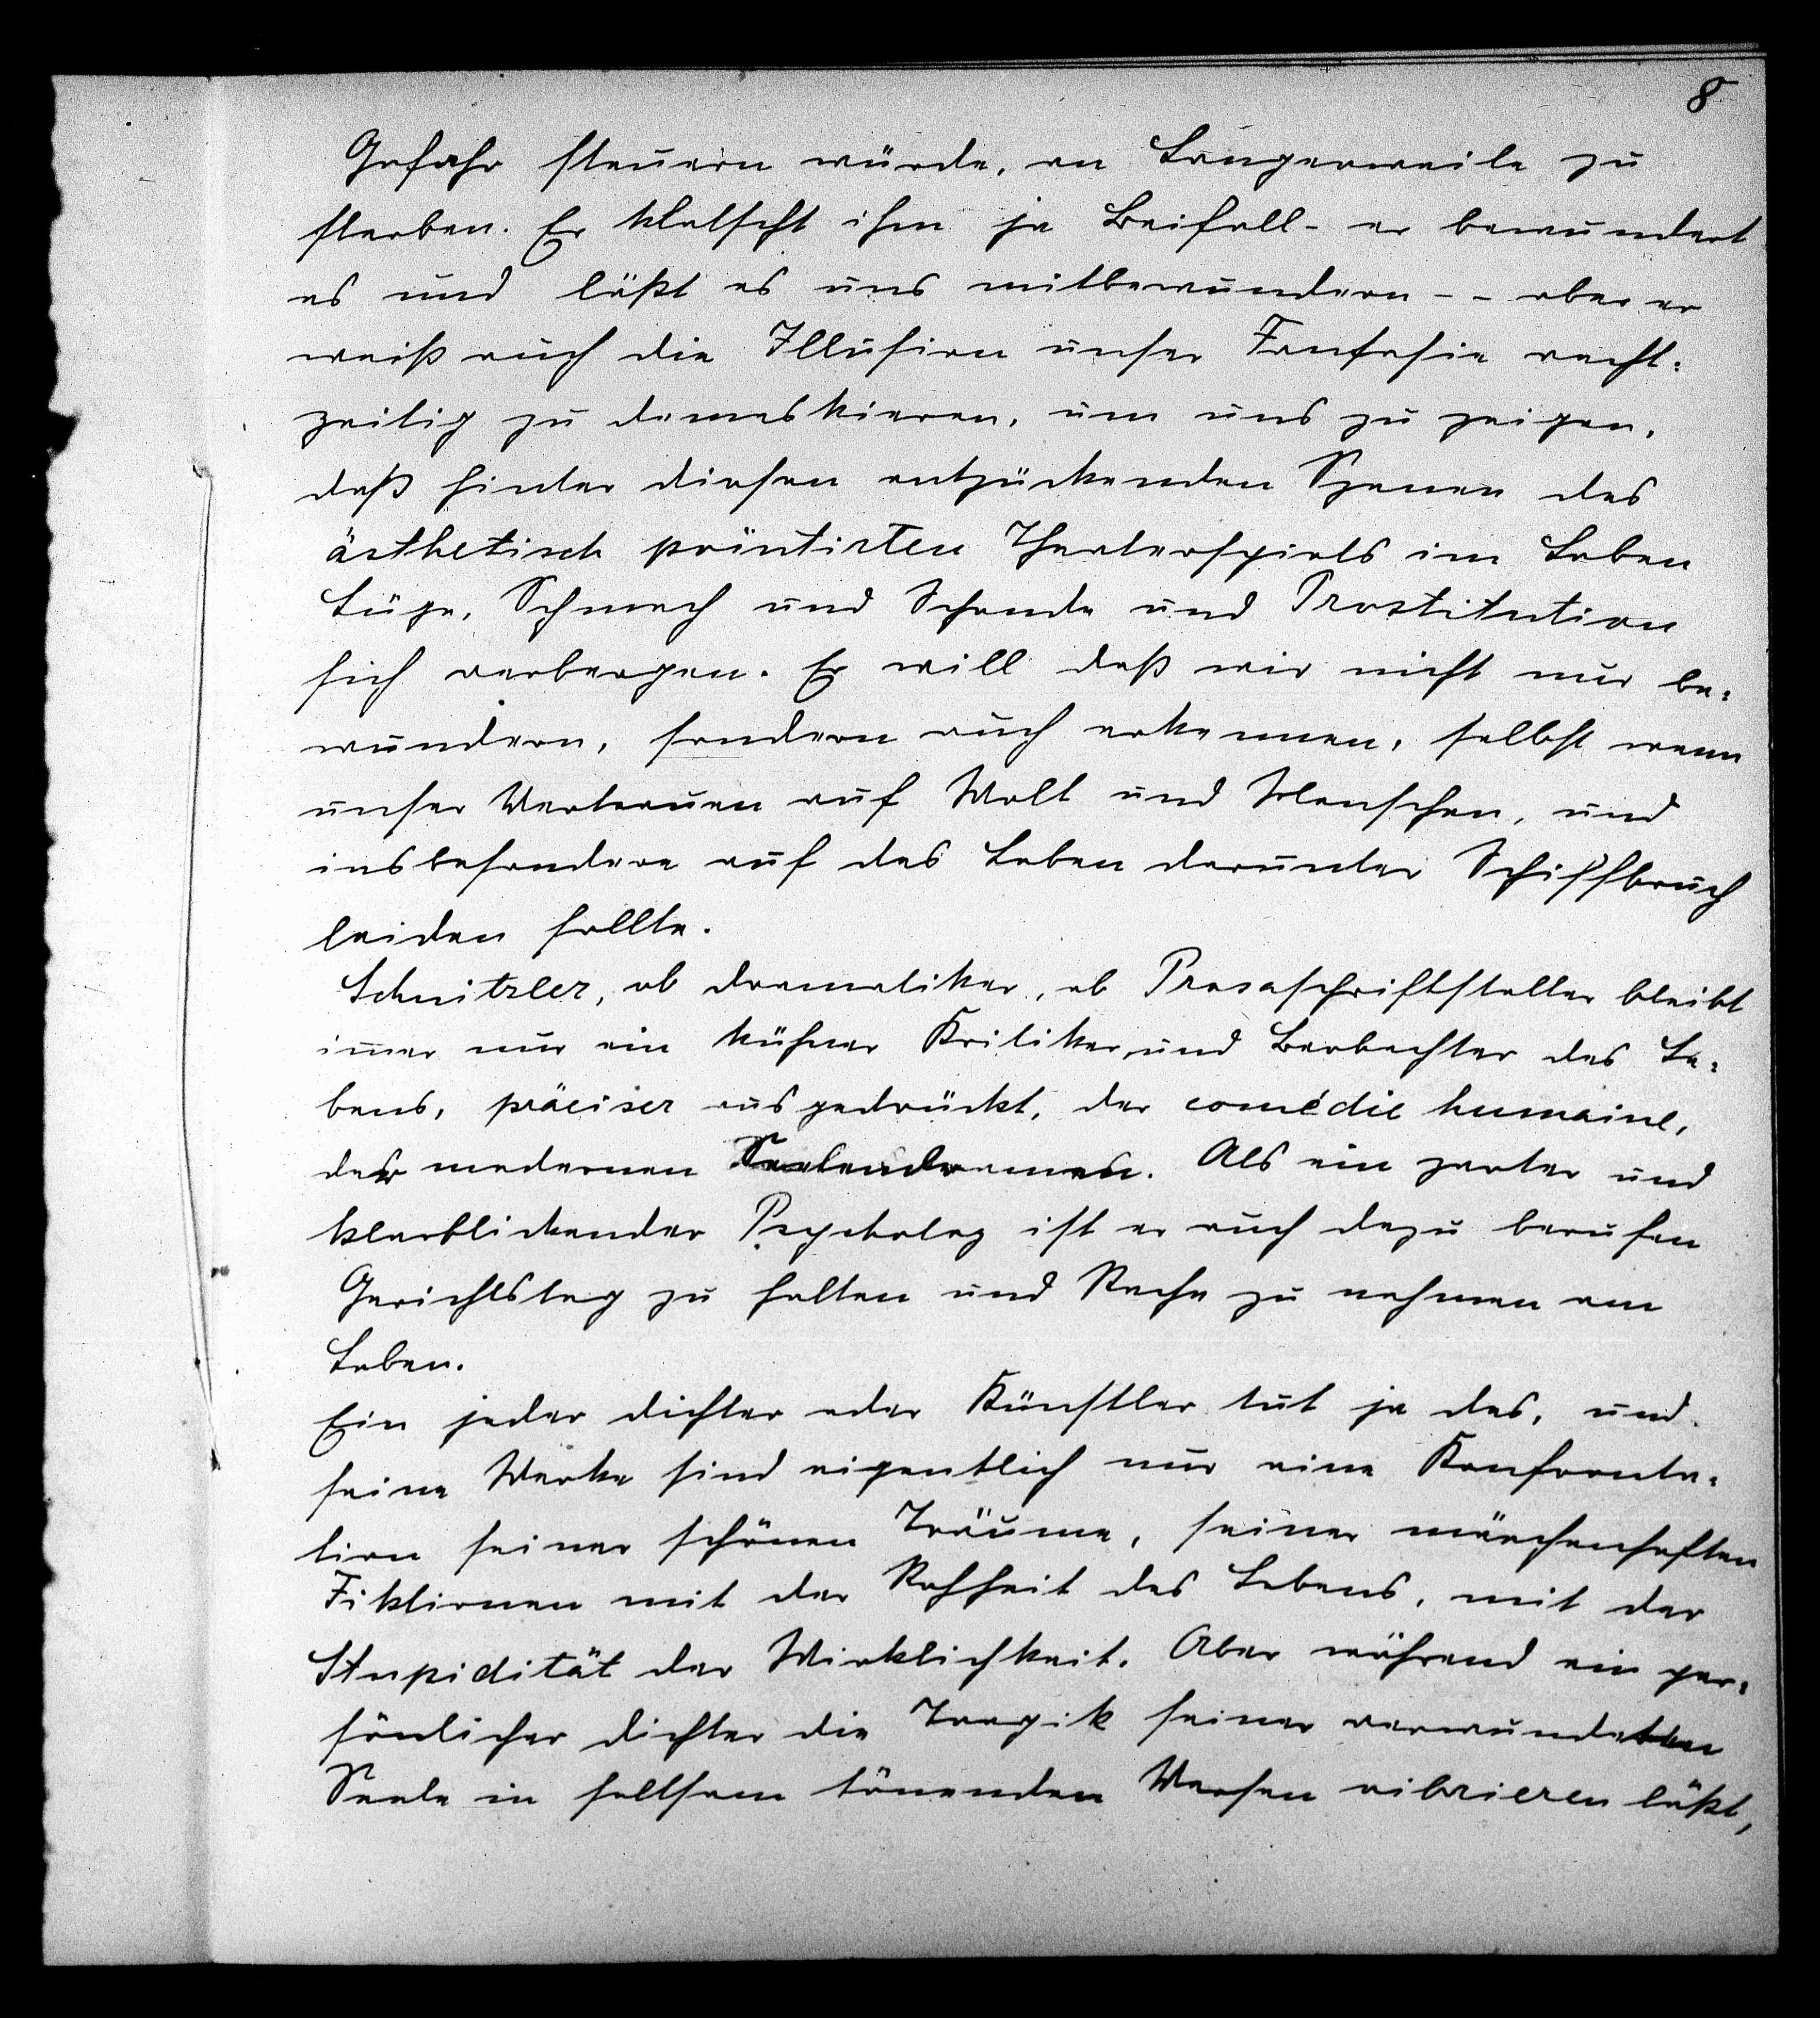 8
Gefahr steuern würde, an Langerweile zu
sterben. Er klatscht ihm ja Beifall - er bewundert
es und läßt es uns mitbewundern - - aber er
weiß auch die Illusion unser Fantasie recht=
zeitig zu demaskieren, um uns zu zeigen,
daß hinter diesen entzückenden Szenen des
ästhetisch pointirten Theaterspiels im Leben
Lüge, Schmach und Schande und Prostitution
sich verbergen. Er will daß wir nicht nur be=
wundern, sondern auch erkennen, selbst wenn
unser Vertrauen auf Welt und Menschen, und
insbesondere auf das Leben darunter Schiffbruch
leiden sollte.
Schnitzler, ob dramatiker, ob Prosaschriftsteller bleibt
immer nur ein kühner Kritiker und Beobachter des Le=
bens, präciser ausgedrückt, der comédie humaine,
der modernen Seelendramen. Als ein zarter und
klarblickender Psycholog ist er auch dazu berufen
Gerichtstag zu halten und Rache zu nehmen am
Leben.
Ein jeder dichter oder Künstler tut ja das, und
seine Werke sind eigentlich nur eine Konfronta=
tion seiner schönen Träume, seiner märchenhaften
Fiktionen mit der Rohheit des Lebens, mit der
Stupidität der Wirklichkeit. Aber während ein per=
sönlicher dichter die Tragik seiner verwundeten
Seele in seltsam tönenden Versen vibrieren läßt,